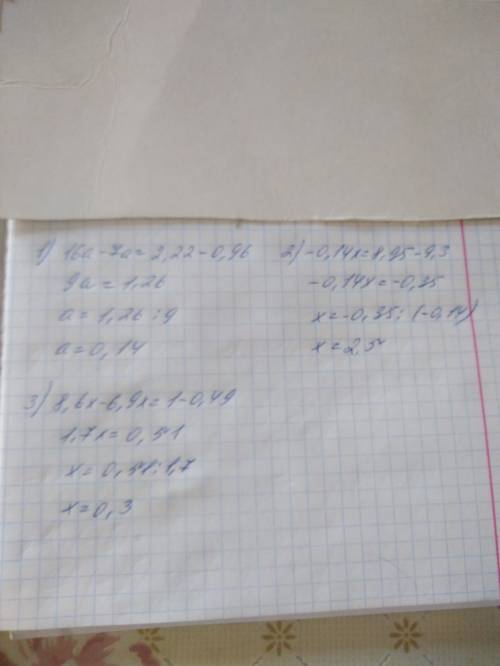 1) 16a-7a=2,22-0,96
9a=1,26
a=1,26:9
a=0,14
2) -0,14x=8,95-9,3
-0,14x=-0,35
x=-0,35:(-0,14)
x=2,5
3) 8,6x-6,9x=1-0,49
1,7x=0,51
x=0,51:1,7
x=0,3